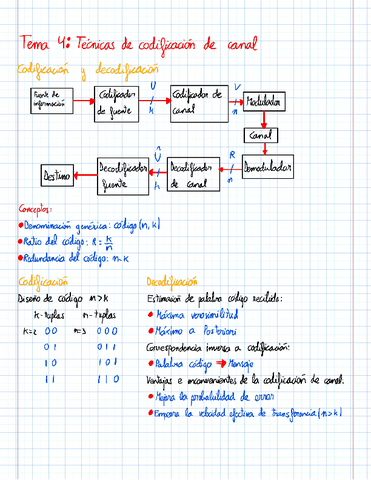 Tema 4: Técnicas de codificación de canal
Codificación y decodificación
Fuente de información
Codificador de fuente
U
k
Codificador de canal
V
n
Modulador
Canal
Demodulador
R
n
Decodificador de canal
Û
k
Decodificador fuente
Destino
Conceptos:
• Denominación genérica: código (n, k)
• Ratio del código: R = k/n
• Redundancia del código: n-k
Codificación
Diseño de código n>k
k-tuplas n-tuplas
k=2 00 n=3 000
01 011
10 101
11 110
Decodificación
Estimación de palabra código recibida:
• Máxima verosimilitud
• Máximo a Posteriori
Correspondencia inversa a codificación:
• Palabra código → Mensaje
Ventajas e inconvenientes de la codificación de canal:
• Mejora la probabilidad de error
• Empeora la velocidad efectiva de transferencia (n>k)